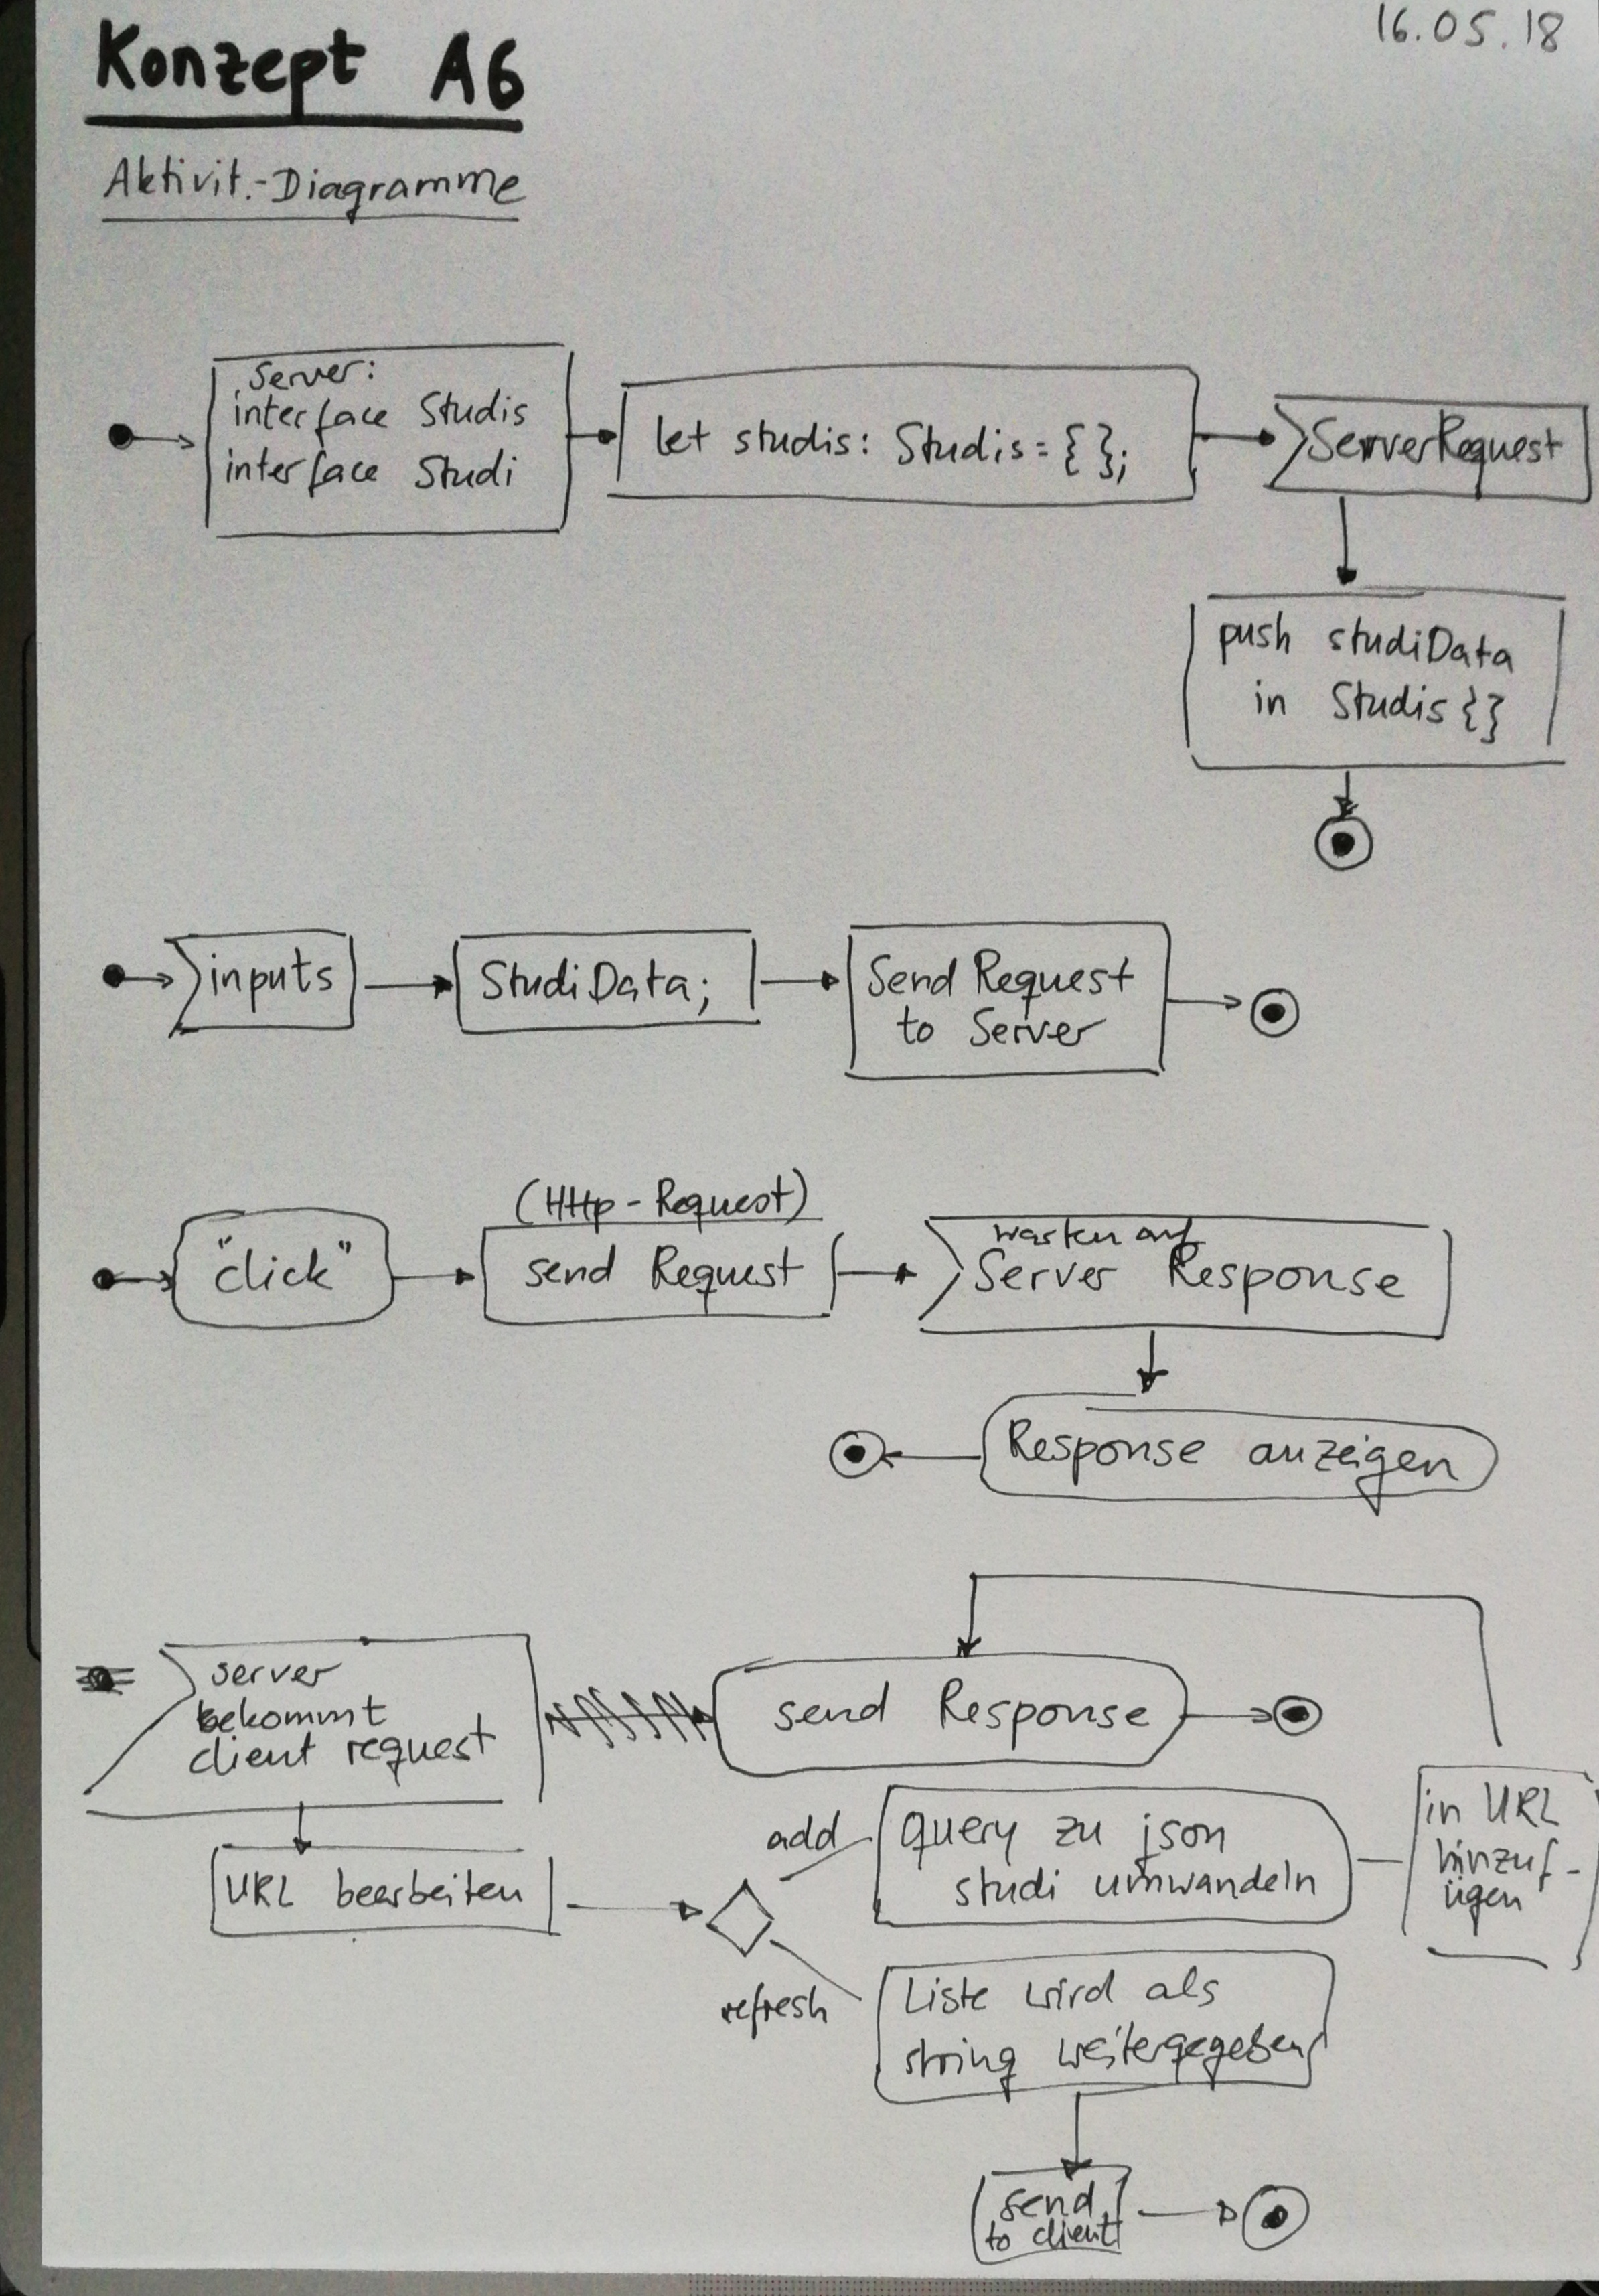 16.05.18
Konzept A6
Aktivit.-Diagramme
Server:
interface Studis
interface Studi
let studis: Studis = { };
ServerRequest
push studiData
in Studis {}
inputs
StudiData;
Send Request
to Server
"click"
(HTTp-Request)
send Request
warten auf
Server Response
Response anzeigen
server
bekommt
client request
send Response
URL bearbeiten
add
refresh
query zu json
studi umwandeln
in URL
hinzuf-
ügen
Liste wird als
string weitergegeben
send
to client